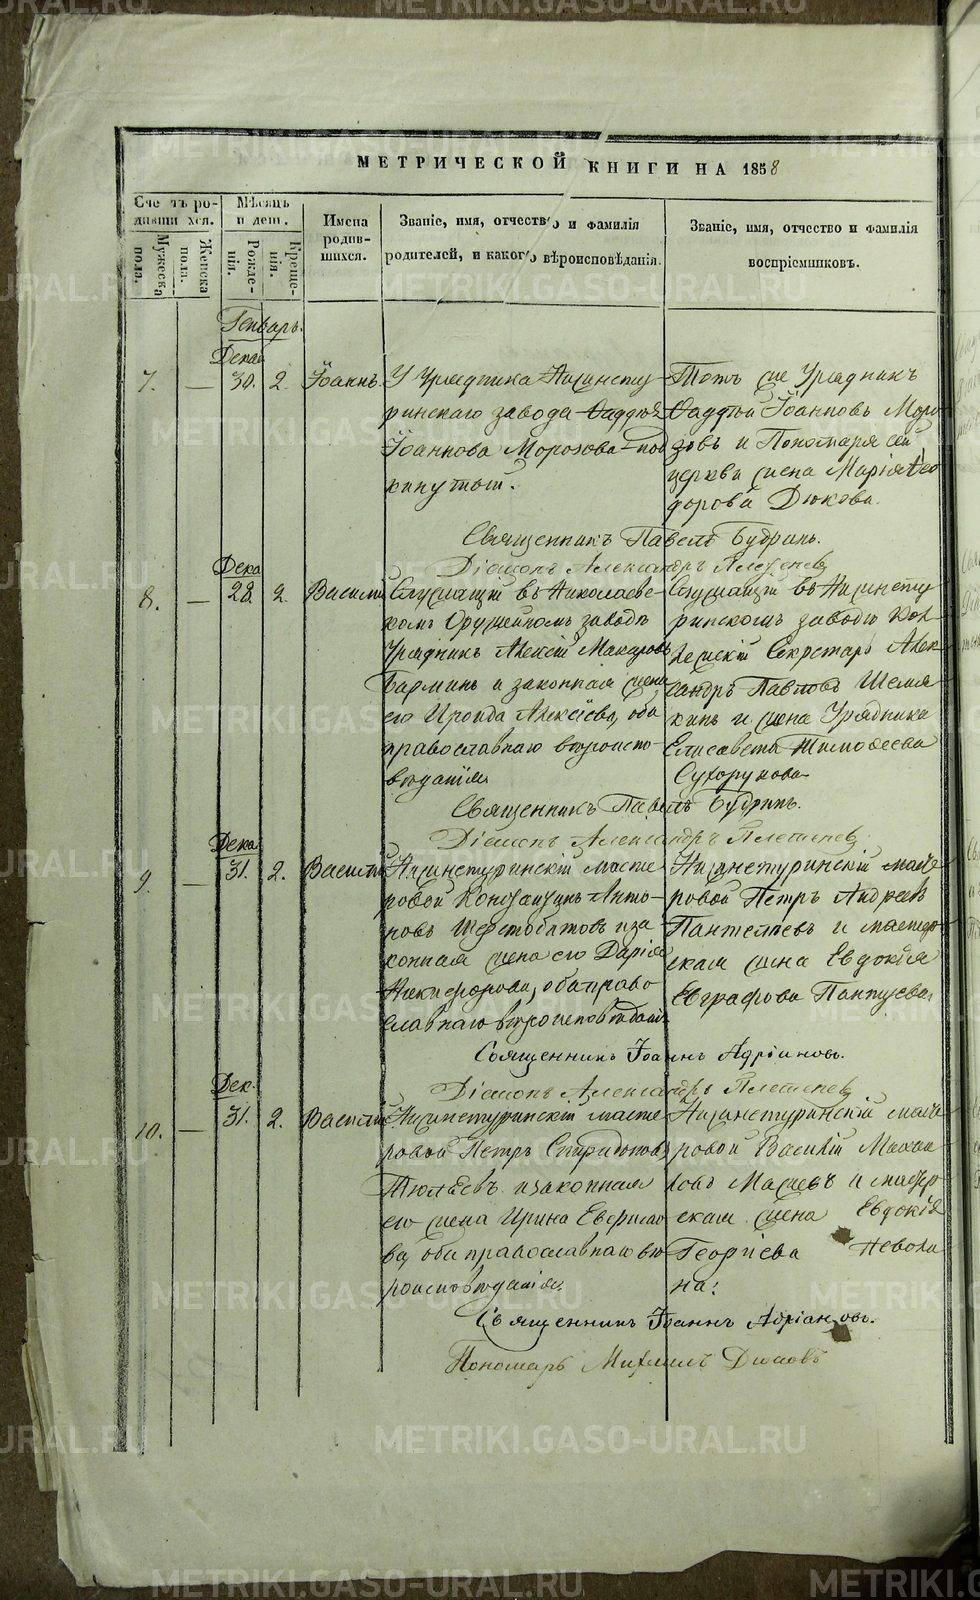 МЕТРИЧЕСКОЙ КНИГИ НА 1858
Счетъ родившихся.
Мужеска пола.
Женска пола.
Мѣсяцъ и день.
Рожденія.
Крещенія.
Имена родившихся.
Званіе, имя, отчество и фамилія
родителей, и какого вѣроисповѣданія.
Званіе, имя, отчество и фамилія
воспріемниковъ.
Генварь.
Дека
7. — 30. 2. Іоаннъ
У Урядника Нижнету-
ринскаго завода Фаддея
Іоаннова Морозова под
кинутый.
Тотъ же Урядникъ
Фаддей Іоанновъ Моро
зовъ и Пономаря сей
церкви жена Марія Ѳео
дорова Дюкова.
Священникъ Павелъ Будринъ.
Діаконъ Александръ
Дека
8. — 28. 2. Василій
Служащій въ Николаев-
комъ Оружейномъ заводѣ
Урядникъ Алексій Макаровъ
Барминъ и законная жена
его Ироида Алексіева, оба
православнаго вѣроиспо-
вѣданія
Служащій въ Нижнету
ринскомъ заводѣ Кол-
лежскій Секретарь Алек
сандръ Павловъ Шемя
кинъ и жена Урядника
Елисавета Тимоѳеева
Сухорукова
Священникъ Павелъ Будринъ.
Діаконъ Александръ
Дека
9. — 31. 2. Василій
Нижнетуринскій масте
ровой Константинъ Анто-
новъ Шерстобитовъ и за
конная жена его Дарія
Никифорова, оба право
славнаго вѣроисповѣданія
Нижнетуринскій масте
ровой Петръ Андреевъ
Пантелѣевъ и мастер
ская жена Евдокія
Евграфова
Священникъ Іоаннъ Адріановъ.
Діаконъ Александръ
Дек.
10. — 31. 2. Василій
Нижнетуринскій масте
ровой Петръ Спиридоновъ
и законная
его жена Ирина
ва, оба православнаго вѣ
роисповѣданія.
Нижнетуринскій масте
ровой Василій Михаи
ловъ и мастер
ская жена Евдокія
Георгіева Неволи
на.
Священникъ Іоаннъ Адріановъ.
Пономарь Михаилъ
METRIKI.GASO-URAL.RU